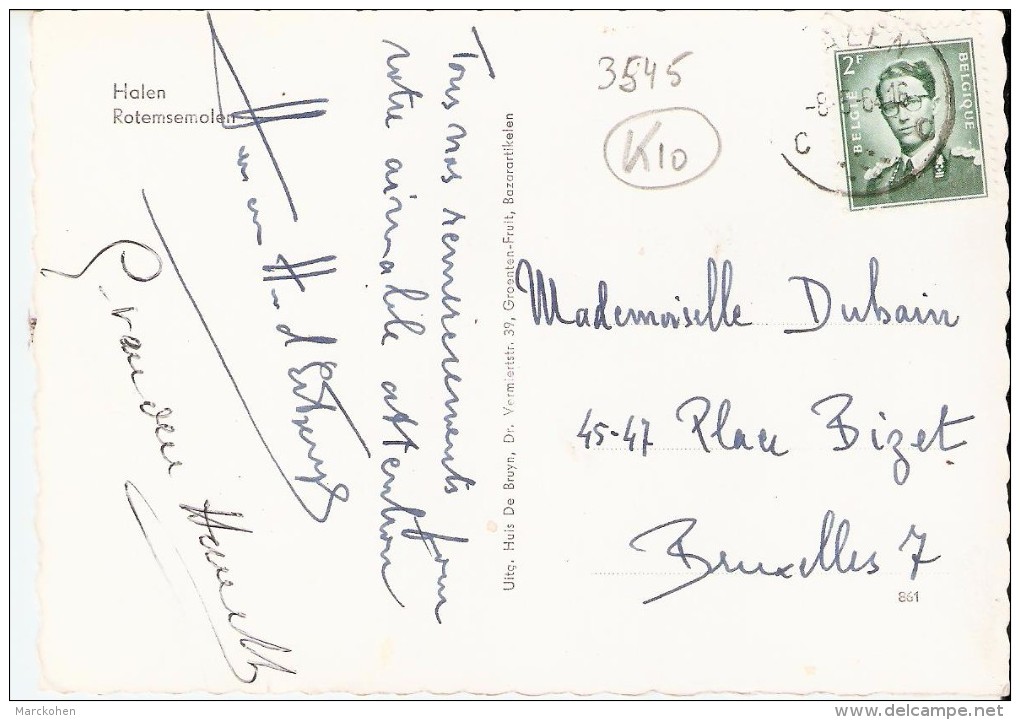 Halen
Rotemsemolen
Tous nos remerciements pour
votre aimable attention
Uitg. Huis De Bruyn, Dr. Vermiertstr. 39, Groenten-Fruit, Bazarartikelen
3545
K10
2F
BELGIË
BELGIQUE
Mademoiselle Dubain
45-47 Place Bizet
Bruxelles 7
861
Marckohen
www.delcampe.net